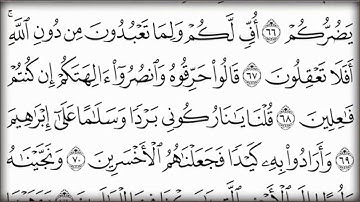 يَضُرُّكُمْ ۝٦٦ أُفٍّ لَّكُمْ وَلِمَا تَعْبُدُونَ مِن دُونِ ٱللَّهِ ۖ
أَفَلَا تَعْقِلُونَ ۝٦٧ قَالُوا۟ حَرِّقُوهُ وَٱنصُرُوٓا۟ ءَالِهَتَكُمْ إِن كُنتُمْ
فَٰعِلِينَ ۝٦٨ قُلْنَا يَٰنَارُ كُونِى بَرْدًا وَسَلَٰمًا عَلَىٰٓ إِبْرَٰهِيمَ
۝٦٩ وَأَرَادُوا۟ بِهِۦ كَيْدًا فَجَعَلْنَٰهُمُ ٱلْأَخْسَرِينَ ۝٧٠ وَنَجَّيْنَٰهُ